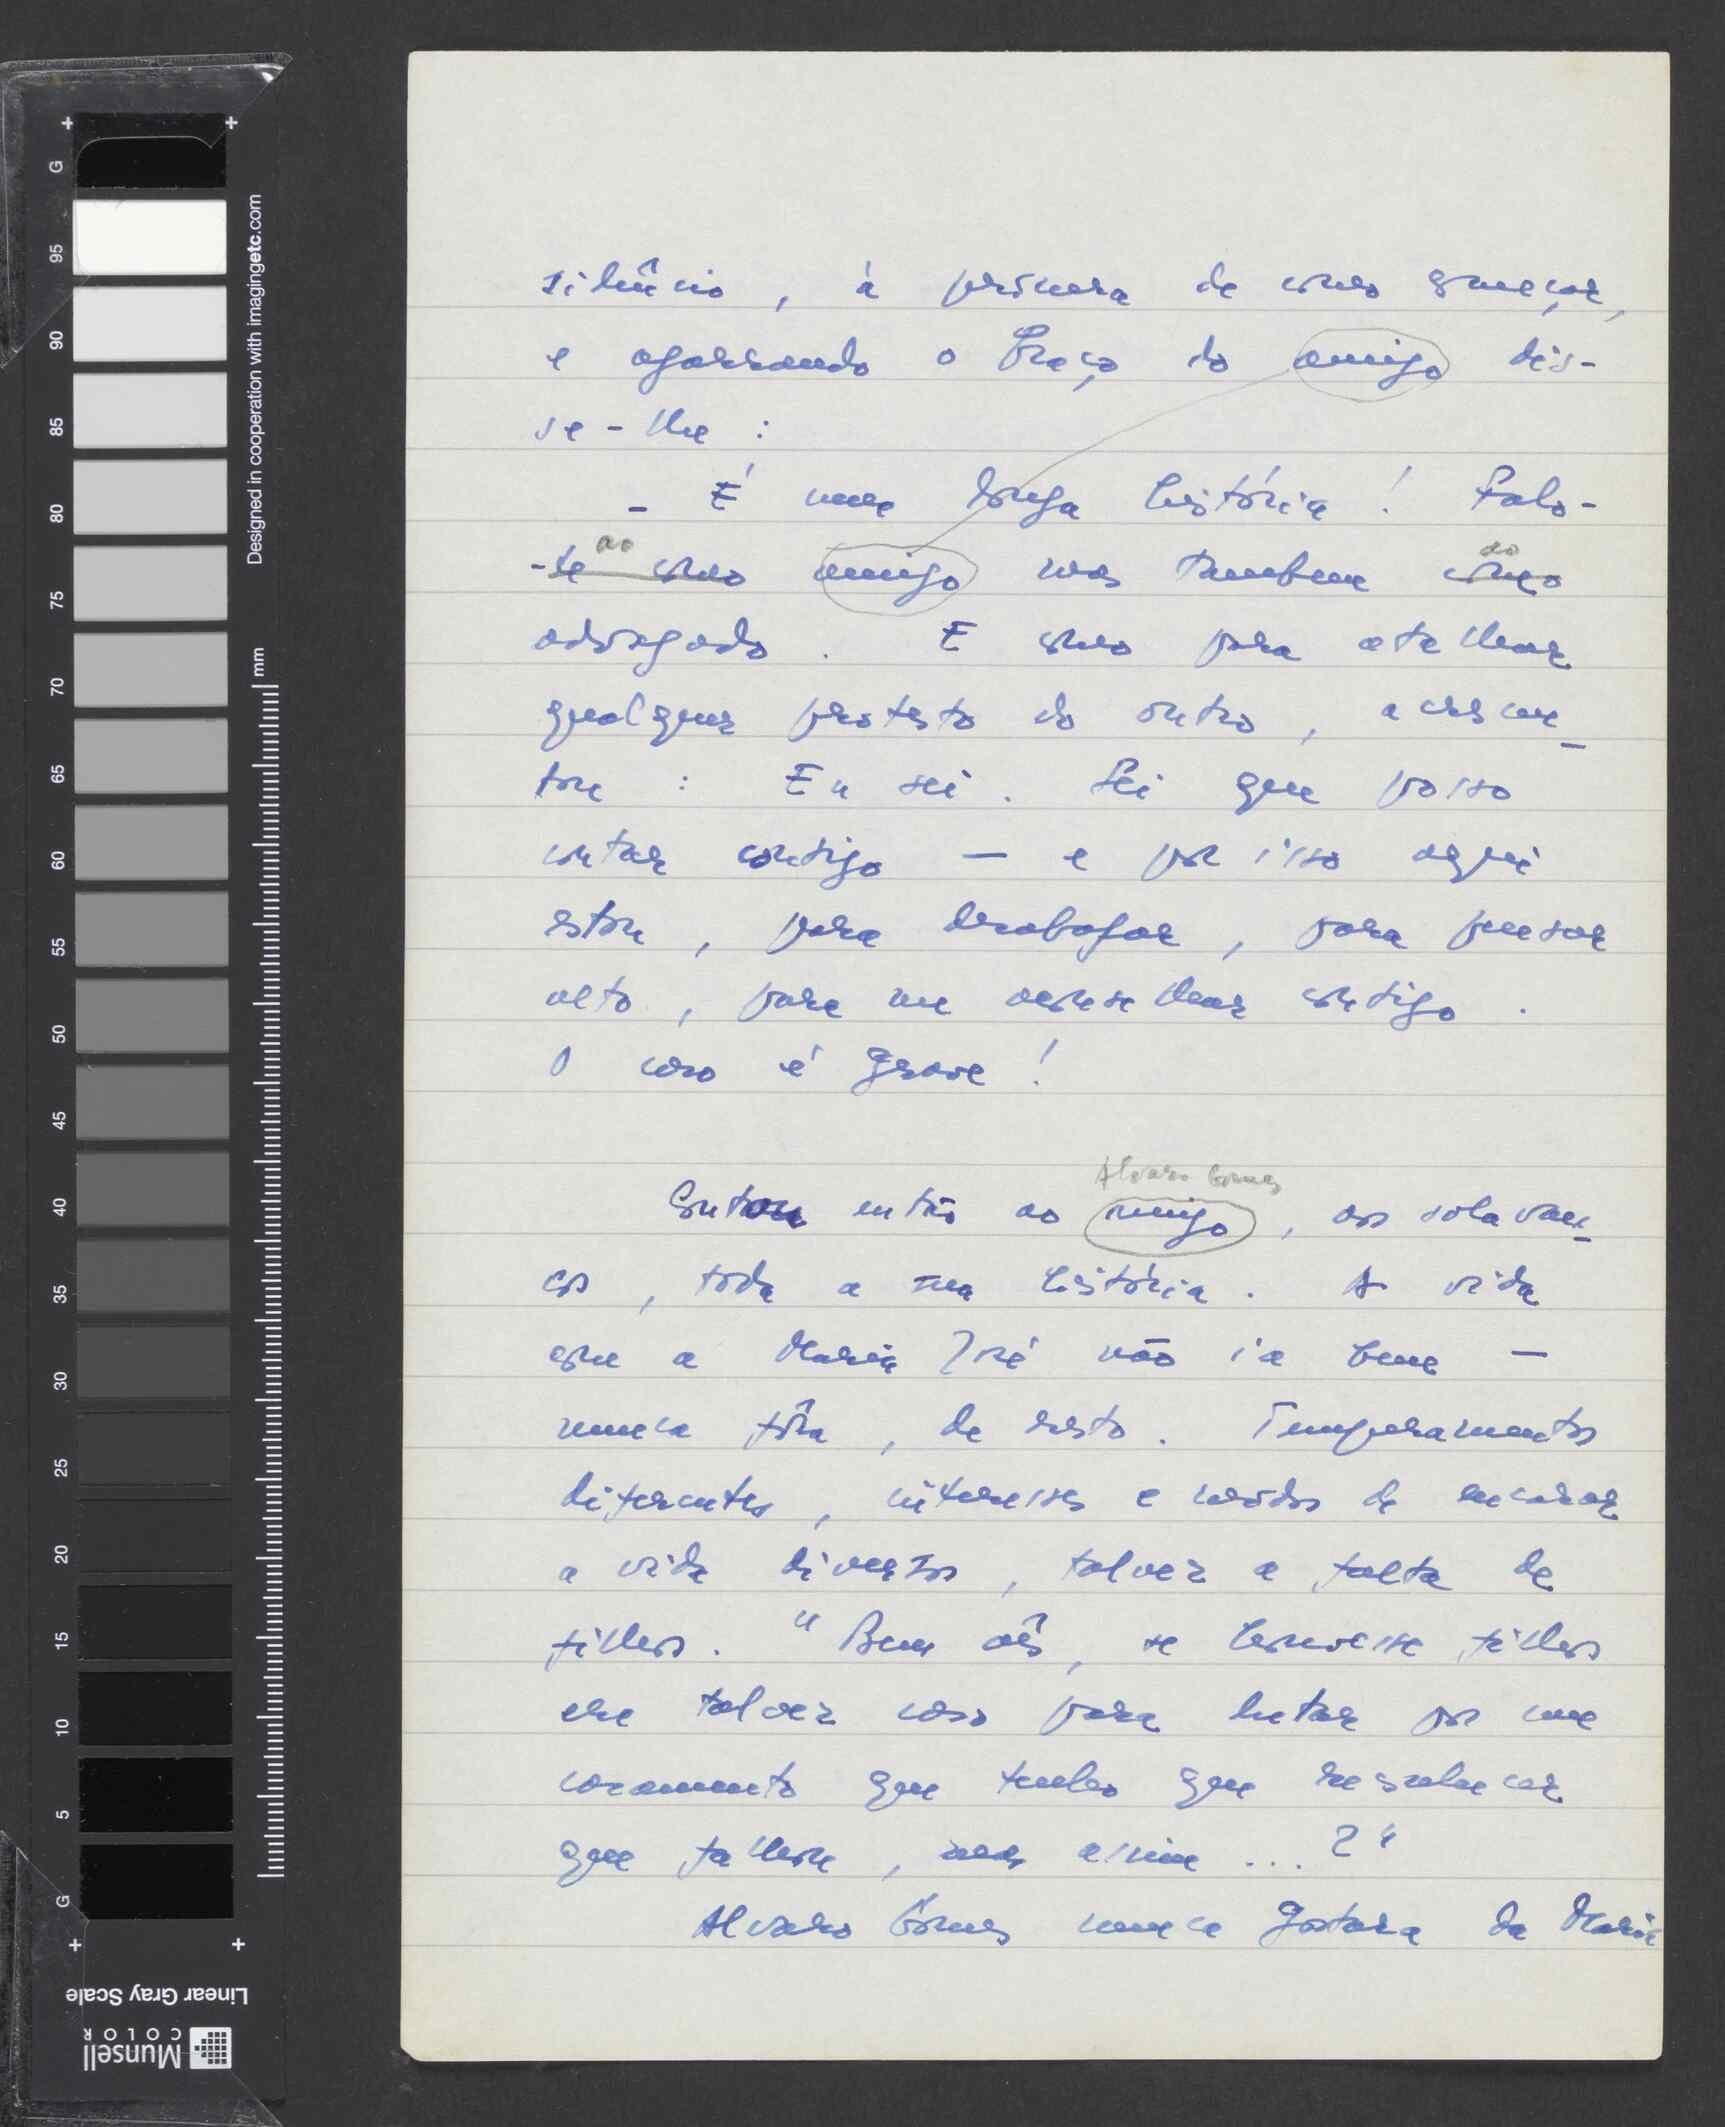 silêncio, à procura de como começar,
e agarrando o braço do amigo dis-
se-lhe:
- É uma longa história! Falo-
ao do
-te como amigo mas tambem como
advogado. E como para atalhar
qualquer protesto do outro, acrescen-
tou: Eu sei. Sei que posso
contar contigo — e por isso aqui
estou, para desabafar, para pensar
alto, para me aconselhar contigo.
O caso é grave!
Alvaro Gomes
Contou então ao amigo, aos solavan-
cos, toda a sua história. A vida
com a Maria José não ia bem —
nunca fôra, de resto. Temperamentos
diferentes, interesses e modos de encarar
a vida diversos, talvez a falta de
filhos. "Bem vês, se houvesse filhos
era talvez caso para lutar por um
casamento que tenho que reconhecer
que falhou, mas assim...?"
Alvaro Gomes nunca gostara da Maria
G 95 90 85 80 75 70 65 60 55 50 45 40 35 30 25 20 15 10 5 G
Designed in cooperation with imagingetc.com
mm
Linear Gray Scale
Munsell
COLOR